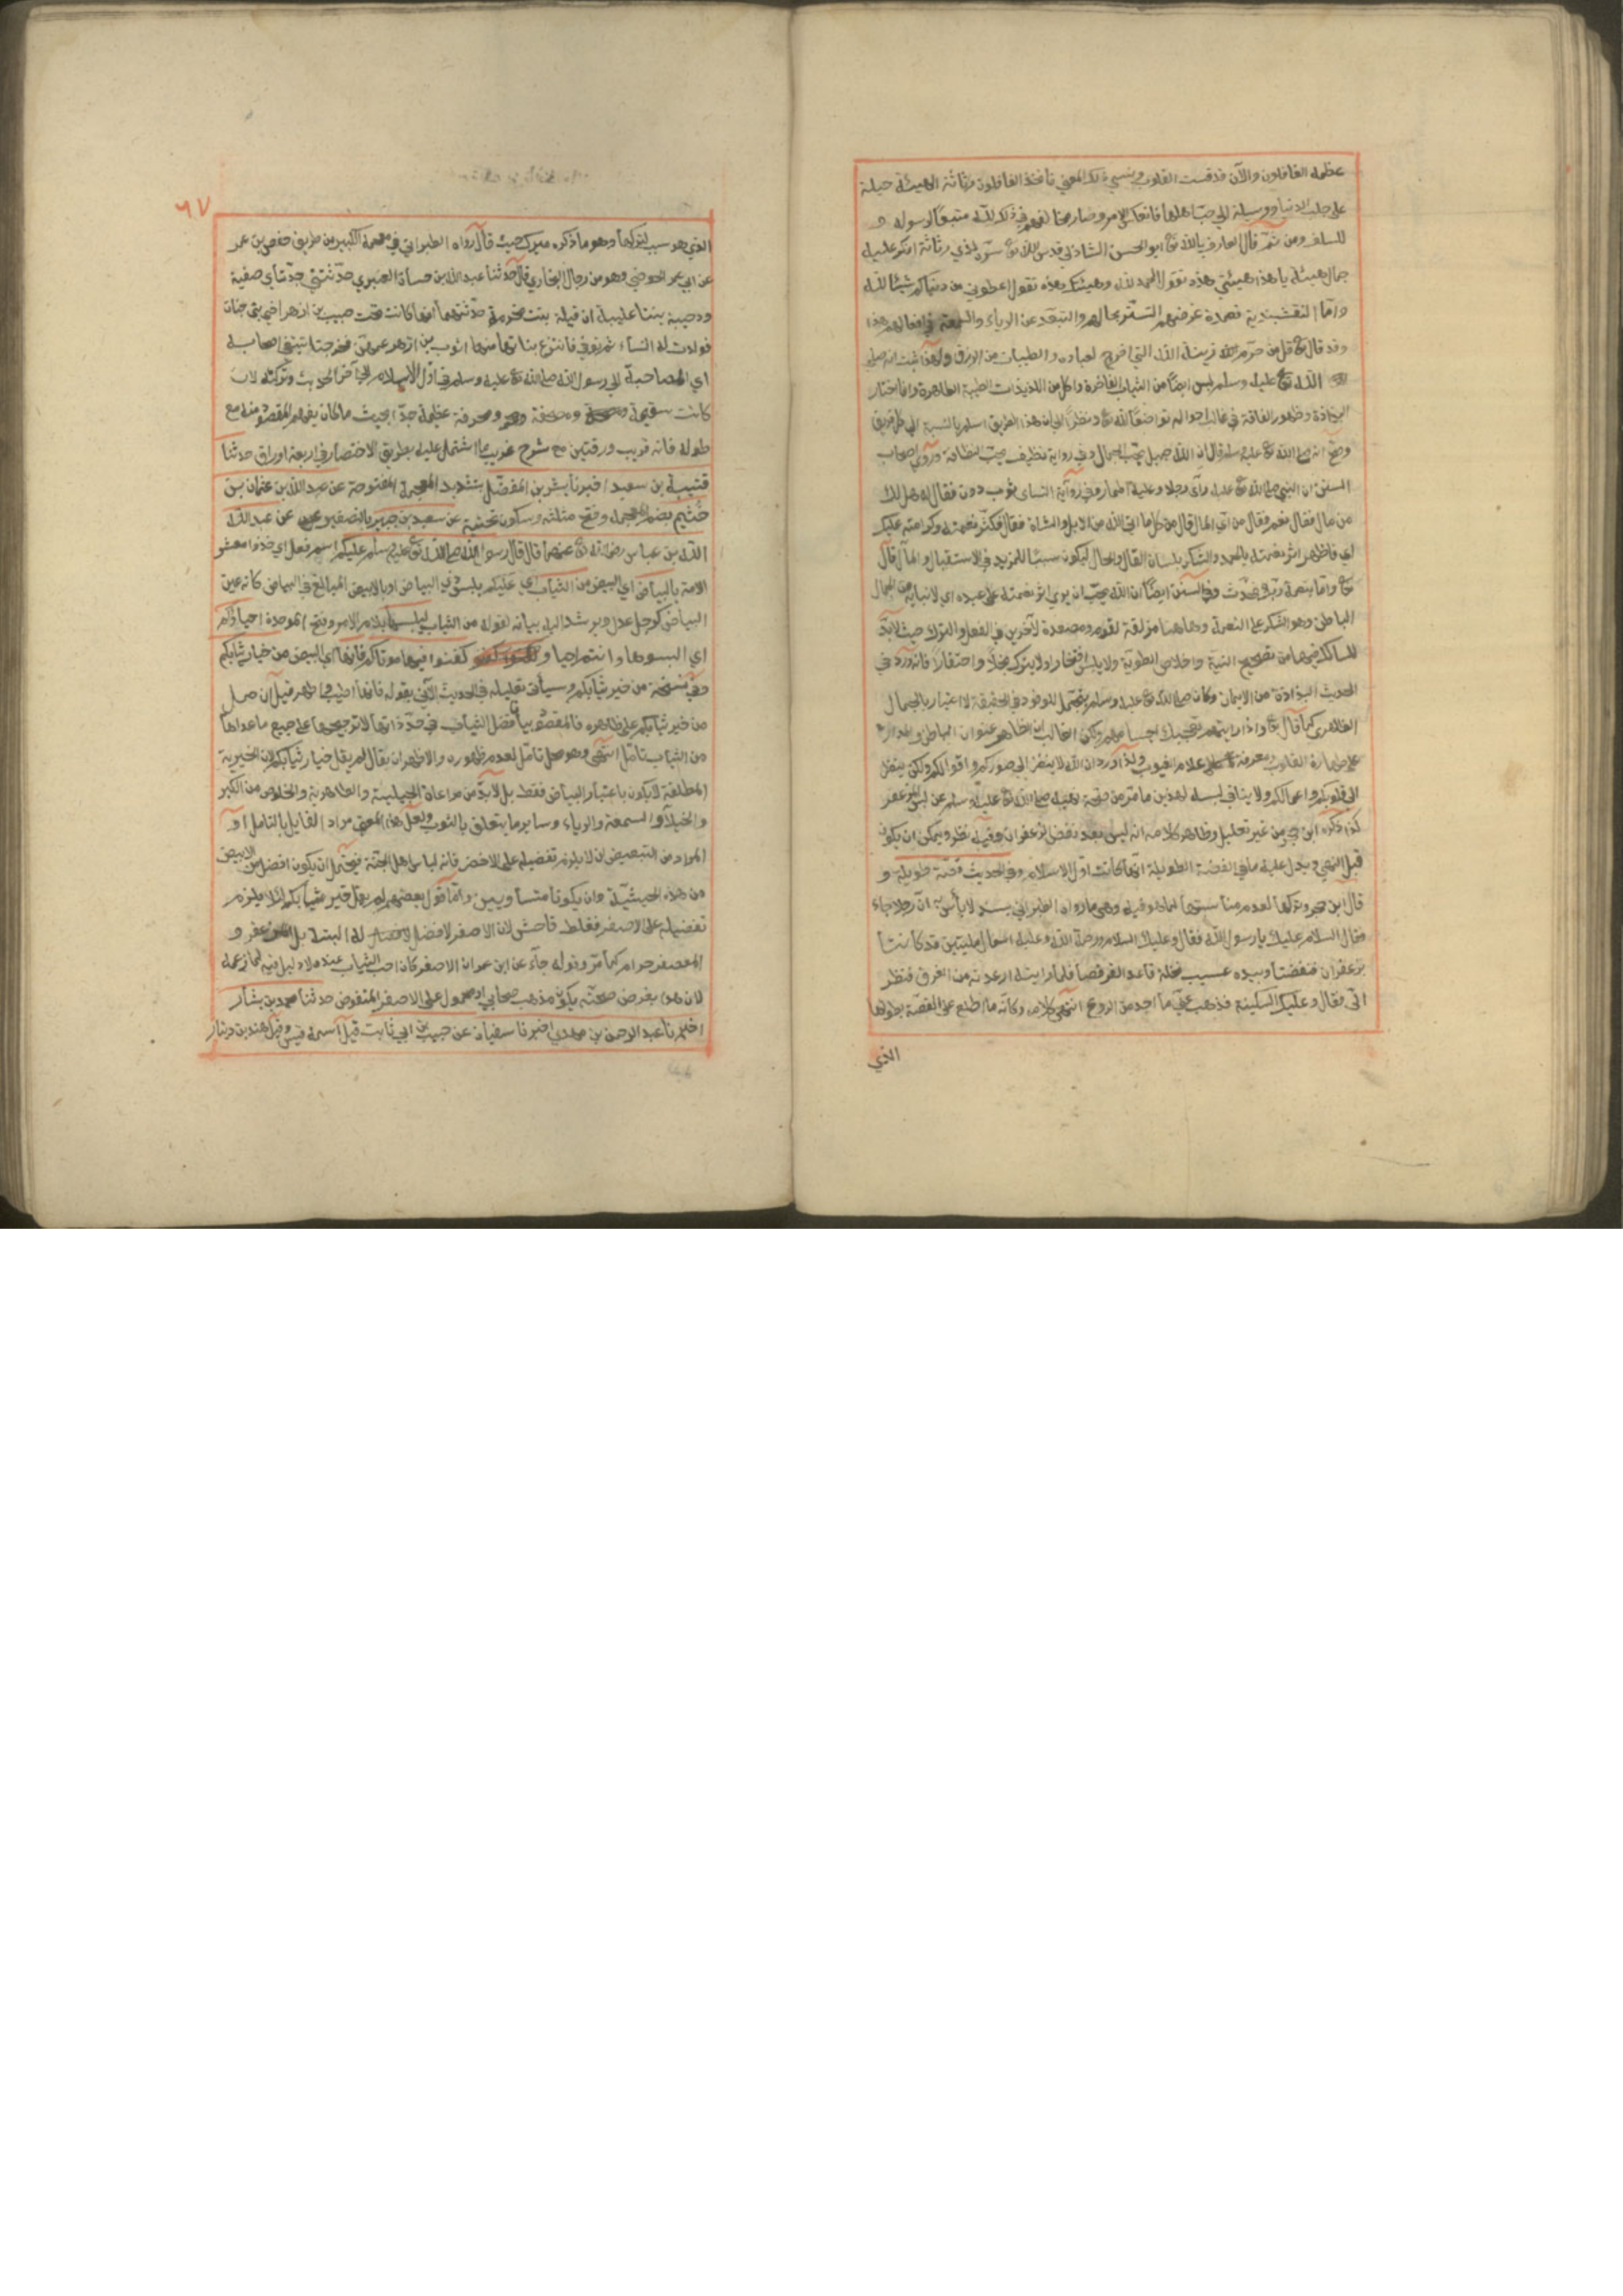 عظمه الغافلون والآن قد قست القلوب ونسي ذلك المعنى فاتخذ الغافلون رثاثة الهيئة حيلة
على جلب الدنيا ووسيلة الى حب اهلها فانعكس الامر وصار مخالفهم في ذلك لله متبعا لرسوله و
للسلف ومن ثم قال العارف بالله تع ابو الحسن الشاذلي قدس الله تع سره لذي رثاثة انكر عليه
جمال هيئته يا هذا هيئتي هذه تقول الحمد لله وهيئتك هذه تقول اعطوني من دنياكم شيئا لله
واما النقشبندية فعمدة غرضهم التستر بحالهم والتبعد عن الرياء والسمعة في افعالهم هذا
وقد قال تع قل من حرم زينة الله التي اخرج لعباده والطيبات من الرزق ولهذا ثبت انه صلى
الله تع عليه وسلم لبس ايضا من الثياب الفاخرة واكل من اللذيذات الطيبة الطاهرة وانما اختار
البذاذة وظهور الفاقة في غالب احواله تواضعا لله تع ونظرا الى ان هذا الطريق اسلم بالنسبة الى كل فريق
وصح انه صلى الله تع عليه وسلم قال ان الله جميل يحب الجمال وفي رواية نظيف يحب النظافة وروى اصحاب
السنن ان النبي صلى الله تع عليه رأى رجلا وعليه اطمار وفي رواية النسائي ثوب دون فقال له هل لك
من مال فقال نعم فقال من اي المال قال من كل ما اتى الله من الابل والشاة فقال فكثر نعمته وكرامته عليك
اي فاظهر اثر نعمته بالحمد والشكر بلسان القال والحال ليكون سببا للمزيد في الاستقبال والمآل قال
تع واما بنعمة ربك فحدث وفي السنن ايضا ان الله يحب ان يرى اثر نعمته على عبده اي لانبائه عن الجمال
الباطن وهو الشكر على النعمة وهاهنا مزلقة لقوم ومصعدة لآخرين في الفعل والترك حيث لا بد
للسالك فيهما من تصحيح النية واخلاص الطوية ولا يلبس افتخارا ولا يترك بخلا واحتقارا فانه ورد في
الحديث البذاذة من الايمان وكان صلى الله تع عليه وسلم يتجمل للوفود في الحقيقة لا اعتبار بالجمال
الظاهري كما قال تع واذا رايتهم تعجبك اجسامهم ولكن الغالب ان الظاهر عنوان الباطن والمدار
على طهارة القلوب ومعرفة علام الغيوب ولذا ورد ان الله لا ينظر الى صوركم واقوالكم ولكن ينظر
الى قلوبكم واعمالكم ولا ينافي لبسه لهذين ما مر من صحة نهيه صلى الله تع عليه وسلم عن لبس المزعفر
كذا ذكره ابن حجر من غير تعليل وظاهر كلامه انه ليس بعد نفض الزعفران وفيه نظر ويمكن ان يكون
قبل النهي ويدل عليه ما في القصة الطويلة انها كانت اول الاسلام وفي الحديث قصة طويلة و
قال ابن حجر وتركها لعدم مناسبتها لما هو فيه وهي ما رواه الطبراني بسند لا بأس به ان رجلا جاء
فقال السلام عليك يا رسول الله فقال وعليك السلام ورحمة الله وعليه اسمال مليتين قد كانتا
بزعفران فنفضتا وبيده عسيب نخلة قاعد القرفصا فلما رايته ارعدت من الفرق فنظر
الي فقال وعليك السكينة فذهب عني ما اجد من الروع انتهى كلامه وكأنه ما اطلع على القصة بطولها
الذي
٩٧
الذي هو سبب لتركها وهو ما ذكره ميرك حيث قال رواه الطبراني في معجمه الكبير من طريق حفص بن عمر
عن ابي عمر الحوضي وهو من رجال البخاري قال حدثنا عبد الله بن حسان العنبري حدثتني جدتاي صفية
ودحيبة بنتا عليبة ان قيلة بنت مخرمة حدثتهما انها كانت تحت حبيب بن ازهر اخي بني جناب
فولدت له النساء ثم توفي فانتزع بناتها منها اثوب بن ازهر عمهن فخرجت تبتغي الصحابة
اي المصاحبة الى رسول الله صلى الله تع عليه وسلم في اول الاسلام الى آخر الحديث وتركته لان
كانت سقيمة ومصحفة ومحرفة عظيمة جدا بحيث ما كان يفهم المقصود منه مع
طوله فانه قريب ورقتين مع شرح غريب ما اشتمل عليه بطريق الاختصار في اربعة اوراق حدثنا
قتيبة بن سعيد اخبرنا بشر بن المفضل بتشديد المعجمة المفتوحة عن عبد الله بن عثمان بن
خثيم بضم المعجمة وفتح مثلثة وسكون تحتية عن سعيد بن جبير بالتصغير عن عبد الله
الله بن عباس رضي الله تع عنهما قال قال رسول الله صلى الله تع عليه وسلم عليكم اسم فعل اي خذوا معشر
الامة بالبياض اي البيض من الثياب اي عليكم بلبس ذي البياض او بالابيض المبالغ في البياض كانه عين
البياض كرجل عدل ويرشد اليه بيانه لقوله من الثياب ليلبسها بلام الامر وفتح الموحدة احياؤكم
اي البسوها وانتم احيا و كفنوا فيها موتاكم فانها اي البيض من خيار ثيابكم
وفي نسخة من خير ثيابكم وسيأتي تعليله في الحديث الآتي بقوله فانها اطيب واطهر قيل ان حمل
من خير ثيابكم على ظاهره فالمقصود بيان فضل الثياب في حد ذاتها لا ترجيحها على جميع ما عداها
من الثياب تامل انتهى وهو محل تامل لعدم ظهوره والاظهر ان يقال لم يقل خيار ثيابكم لان الخيرية
المطلقة لا يكون باعتبار البياض فقط بل لا بد من مراعاة الحيلية والطاهرية والخلوص من الكبر
والخيلاء والسمعة والرياء وساير ما يتعلق بالثوب ولعل هذا المعنى مراد القايل بالتامل او
المراد من التبعيض ان لا يلزم تفضيله على الاخضر فانه لباس اهل الجنة فيحتمل ان يكون افضل من الابيض
من هذه الحيثية وان يكونا متساويين واما قول بعضهم لم يقل خير ثيابكم لئلا يلزم
تفضيله على الاصفر فغلط فاحش لان الاصفر لا فضل له البتة بل المزعفر و
المعصفر حرام كما مر وقوله جآء عن ابن عمر ان الاصفر كان احب الثياب عنده لا دليل فيه لما زعمه
لان هذا بفرض صحته يكون مذهب صحابي او محمول على الاصفر المنفوض حدثنا محمد بن بشار
اخبرنا عبد الرحمن بن مهدي اخبرنا سفيان عن حبيب بن ابي ثابت قيل اسمه قيس وقيل هند بن دينار